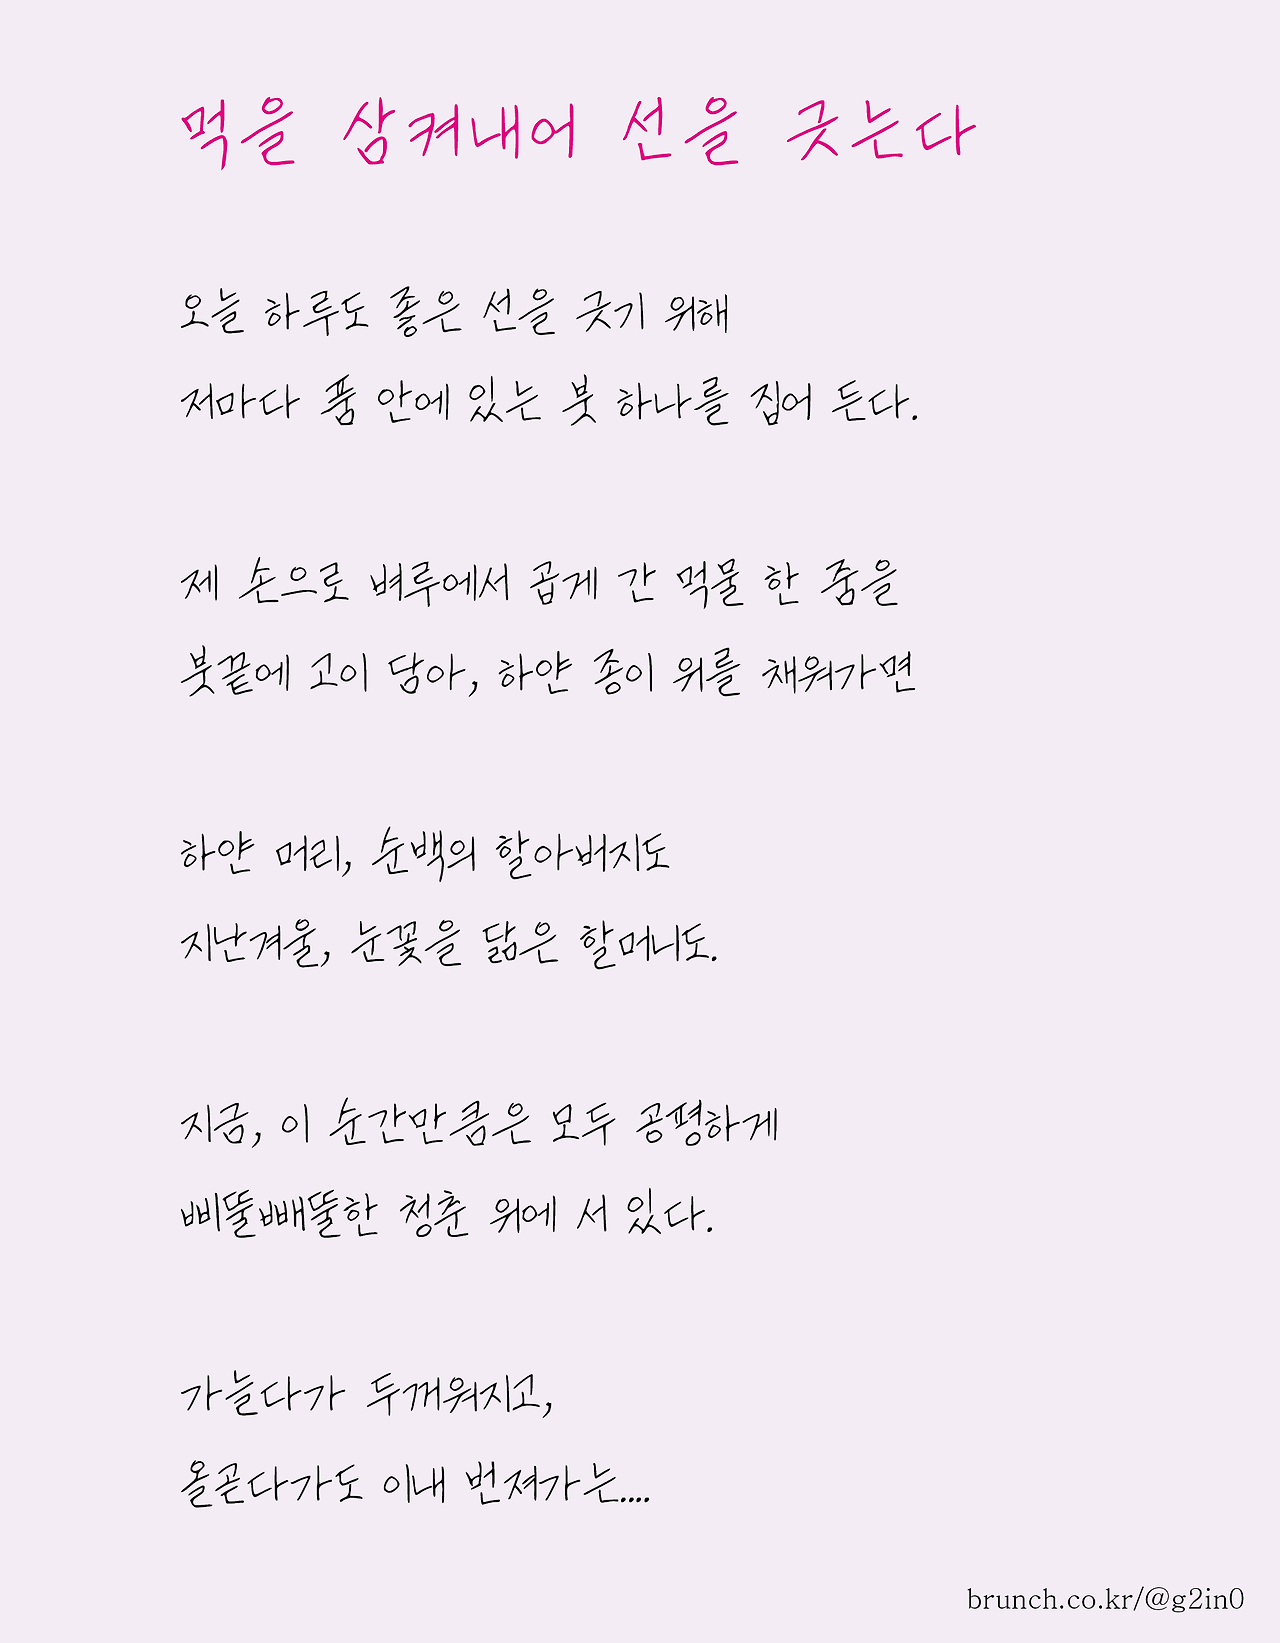 먹을 삼켜내어 선을 긋는다
오늘 하루도 좋은 선을 긋기 위해
저마다 품 안에 있는 붓 하나를 집어 든다.
제 손으로 벼루에서 곱게 간 먹물 한 줌을
붓끝에 고이 담아, 하얀 종이 위를 채워가면
하얀 머리, 순백의 할아버지도
지난겨울, 눈꽃을 닮은 할머니도.
지금, 이 순간만큼은 모두 공평하게
삐뚤빼뚤한 청춘 위에 서 있다.
가늘다가 두꺼워지고,
올곧다가도 이내 번져가는....
brunch.co.kr/@g2in0